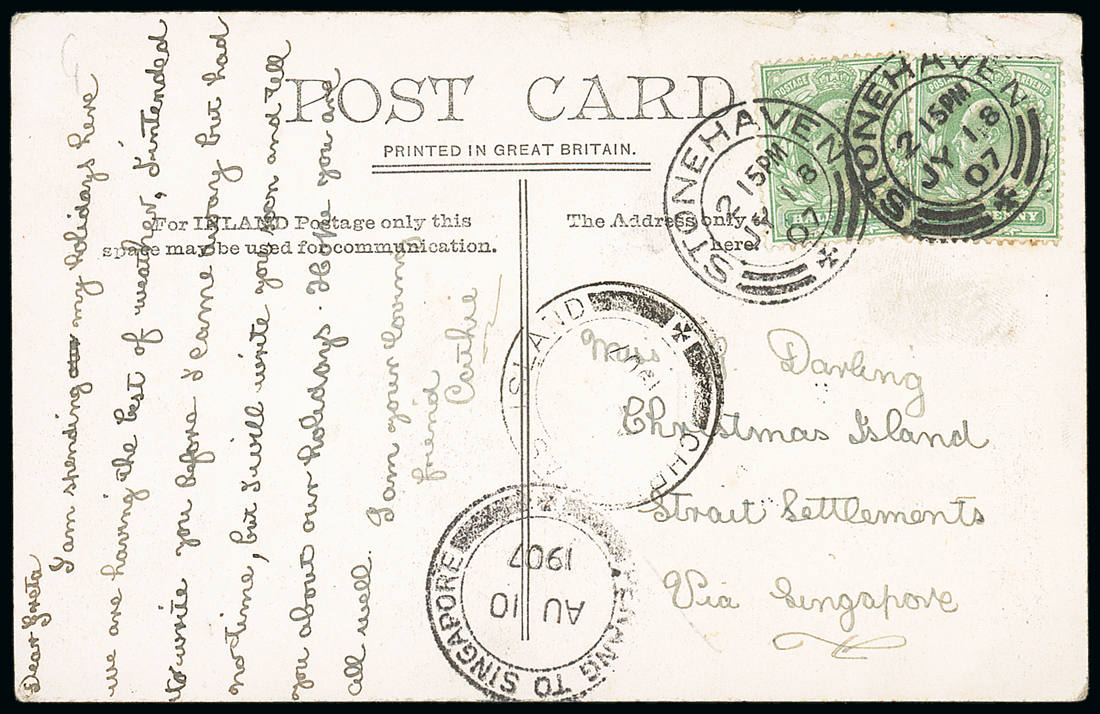 POST CARD
PRINTED IN GREAT BRITAIN.
For INLAND Postage only this
space may be used for communication.
The Address only
here
Dear Greta
I am spending my holidays here
we are having the best of weather, I intended
to write you before I came away but had
no time, but I will write you soon and tell
you about our holidays. Hope you are
all well.
I am your loving
friend
Cathie
Miss Darling
Christmas Island
Strait Settlements
Via Singapore
STONEHAVEN
2 15PM
JY 18
07
STONEHAVEN
2 15PM
JY 18
07
POSTAGE
REVENUE
CHR ISLAND
PENANG TO SINGAPORE
AU 10
1907